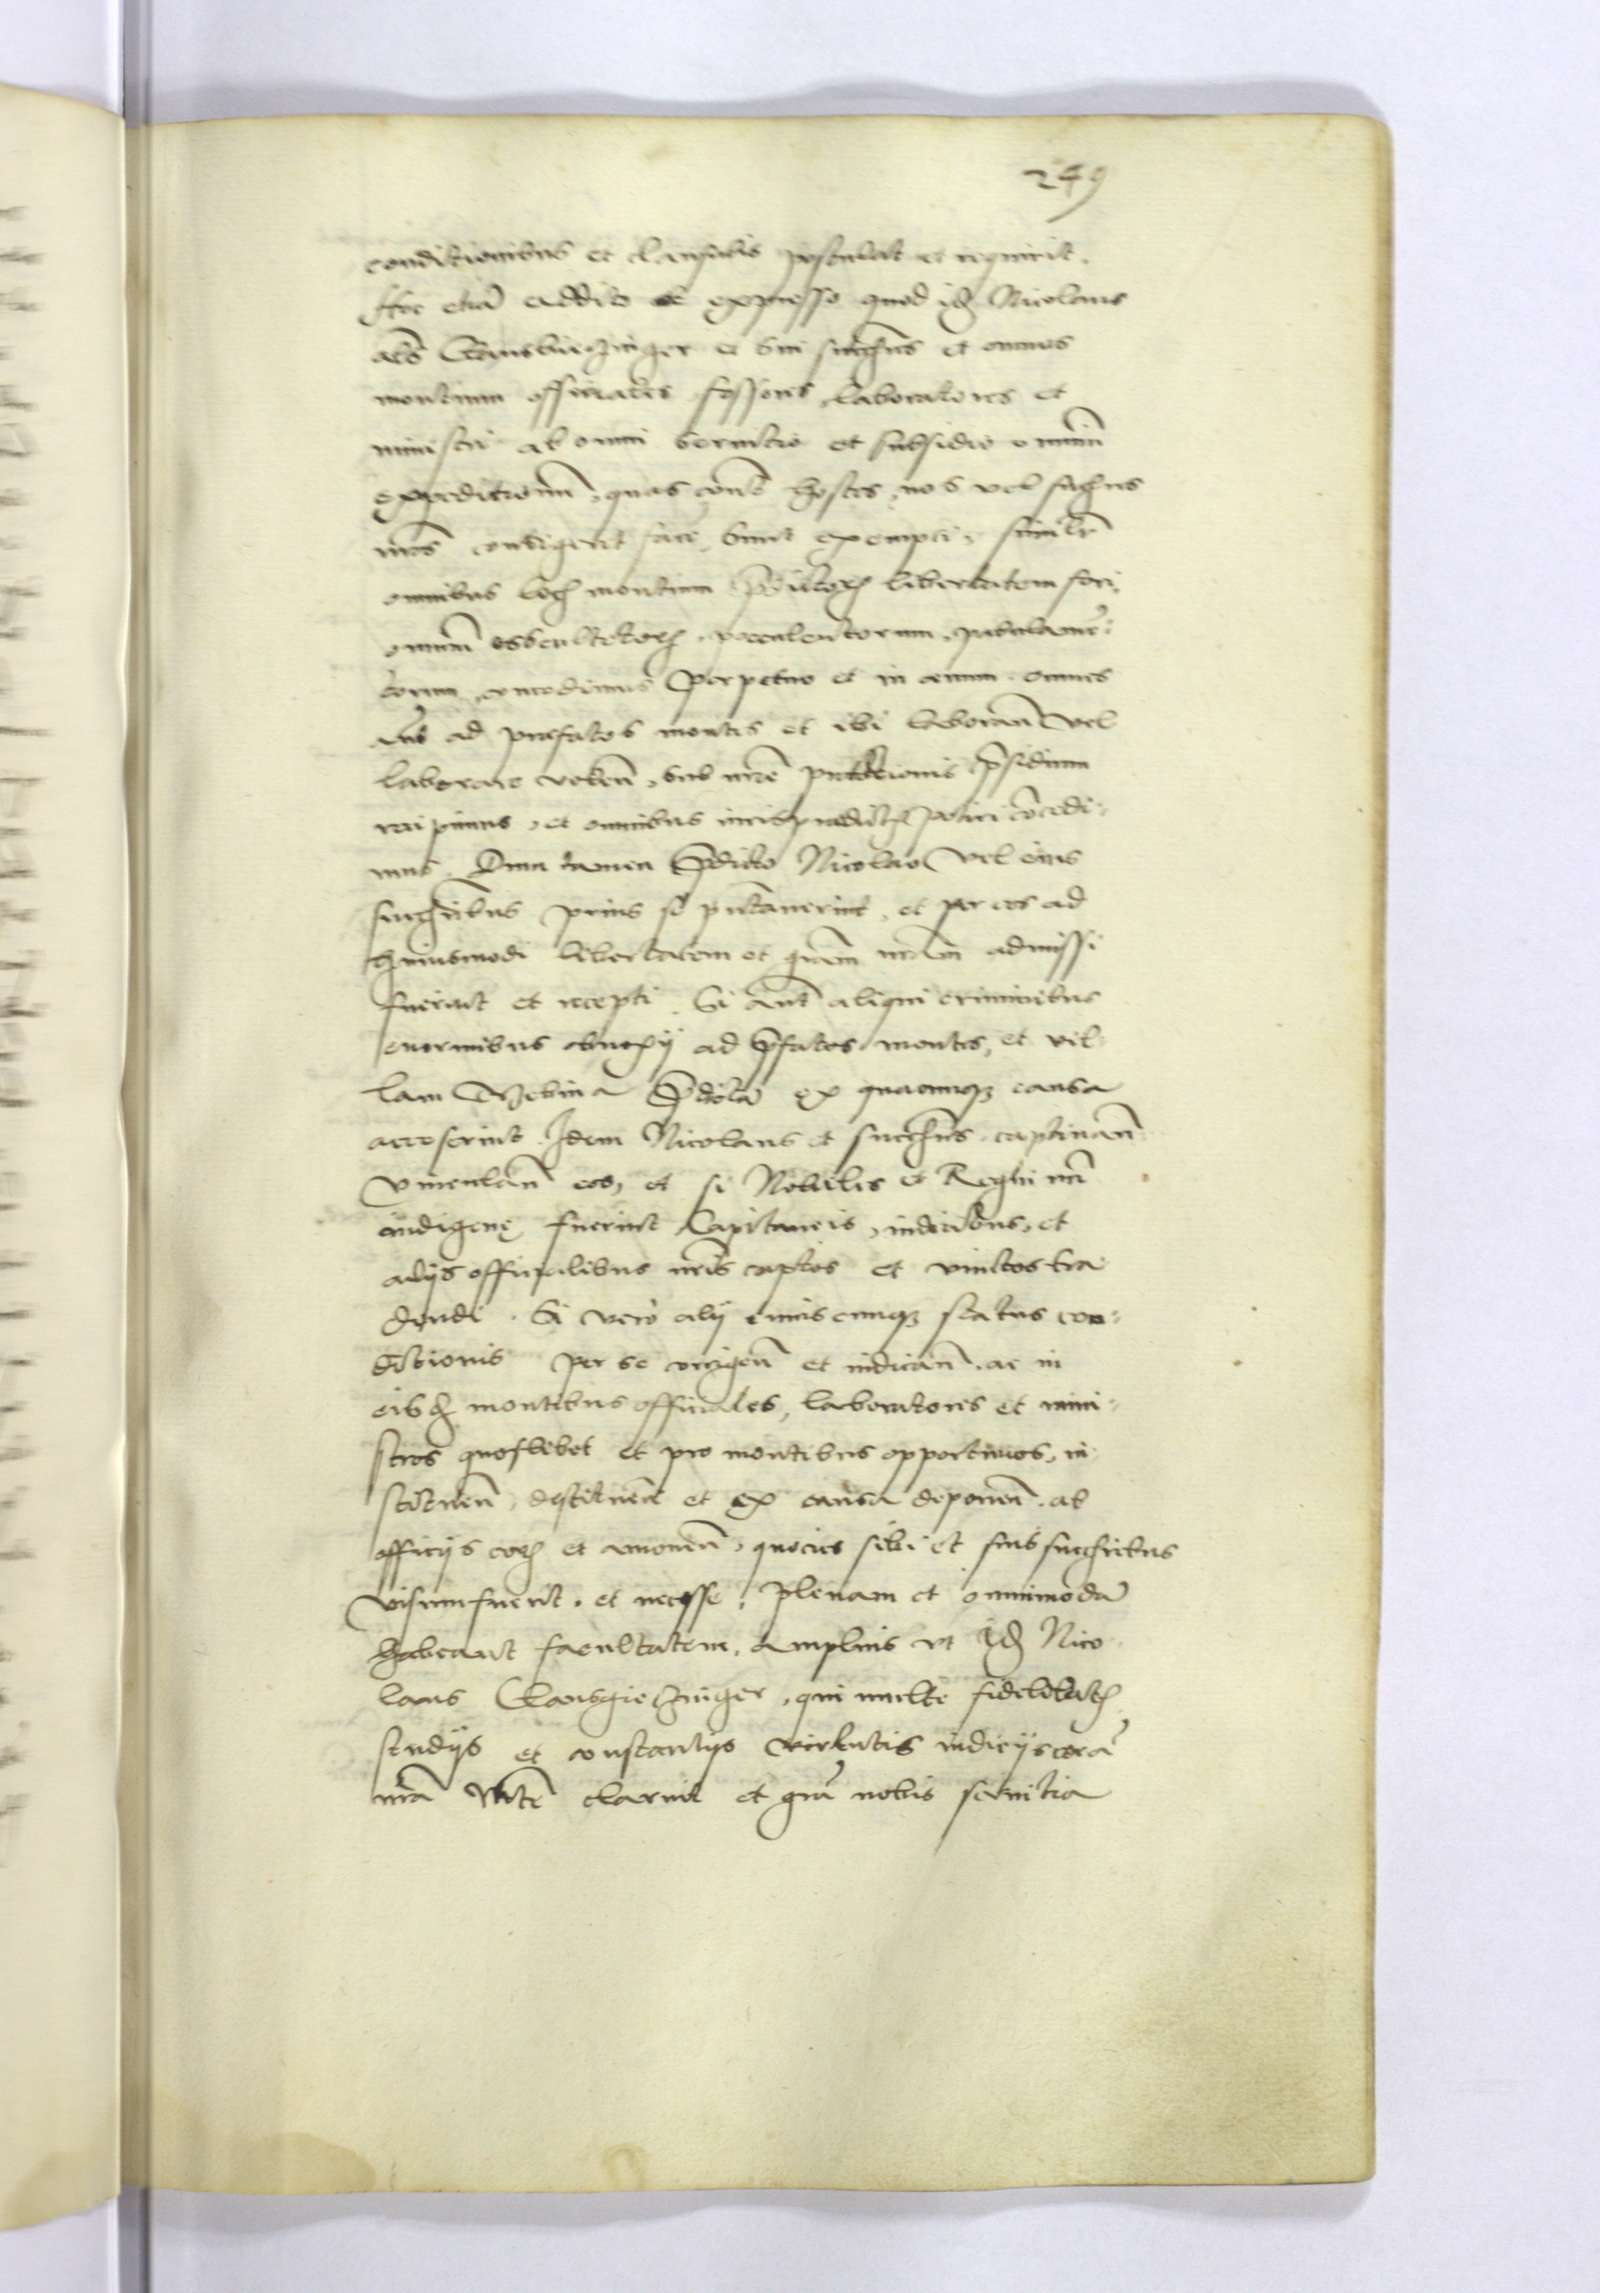 249
conditionibus et clausulis postulat et requirit.
Hoc etiã addito et expresso quod id Nicolaus
als et sui succſſres et omnes
montium officiales fossores laboratores et
ministri ab omni servitio et subsidio omniũ
expeditionũ, quas contẽ hostes, nos vel succres
nros contigerit facẽ, sint exempti, similr̃
omnibus locis montium p̃dictoꝝ libertatem fori,
omniũ esculẽtoꝝ, poculentorum, pabulamẽ:
torum, concedimus perpetuo et in aeuum. omnes
aũt ad praefatos montes et ibi laborañ vel
laborare voleñ, sub nr̃e protectionis p̃sidium
recipimus, et omnibus iurib praedictis potiri cõcedi:
mus. Dum tamen p̃dicto Nicolao vel eius
succſſribus prius se p̃ntauerint, et per eos ad
huiusmodi libertatem et grãm nr̃am admissi
fuerint et recepti. Si aut̃ aliqui criminibus
enormibus obnoxij ad p̃fatos montes, et vil
lam p̃dictã ex quacunqꝫ causa
accesserint. Idem Nicolaus et succſſres captiuañ
vinculañ eos, et si Nobiles et Regni nri
indigenę fuerint Capitaneis, iudicibus, et
alijs officialibus nr̃is captos et vinctos tra
dendi. Si vero alij cuiuscunqꝫ status con:
ditionis per se corrigeñ et iudicañ. ac in
eisd montibus officiales, laboratores et mini:
stros quoslibet et pro montibus opportunos, in
stitueñ, destitueñ et ex causa deponeñ. ab
officijs eoꝝ et amoueñ, quocies sibi et suis succſſribus
visum fuerit. et necesse, plenam et omnimodã
habeant facultatem. Amplius vt id Nico
laus, qui multe fidelitatis
studijs et constantijs virtutis indicijs corã
nr̃a M̃te claruit et grã nobis seruitia